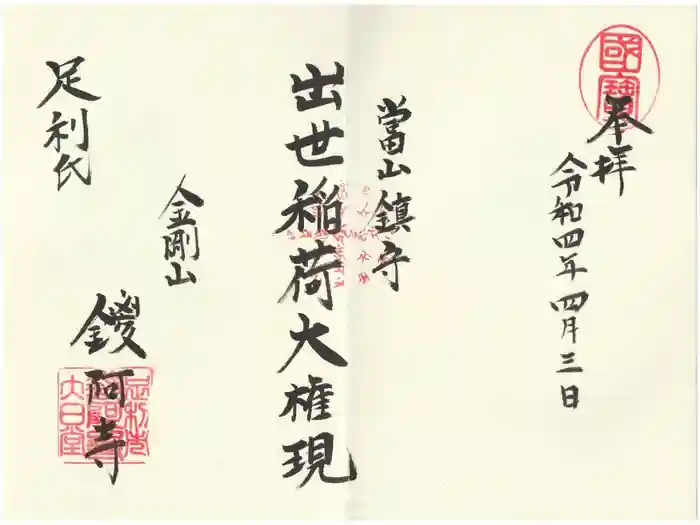 國寶
奉拝
令和四年四月三日
當山鎮守
出世稲荷大権現
足利氏
金剛山
鑁阿寺
大日堂